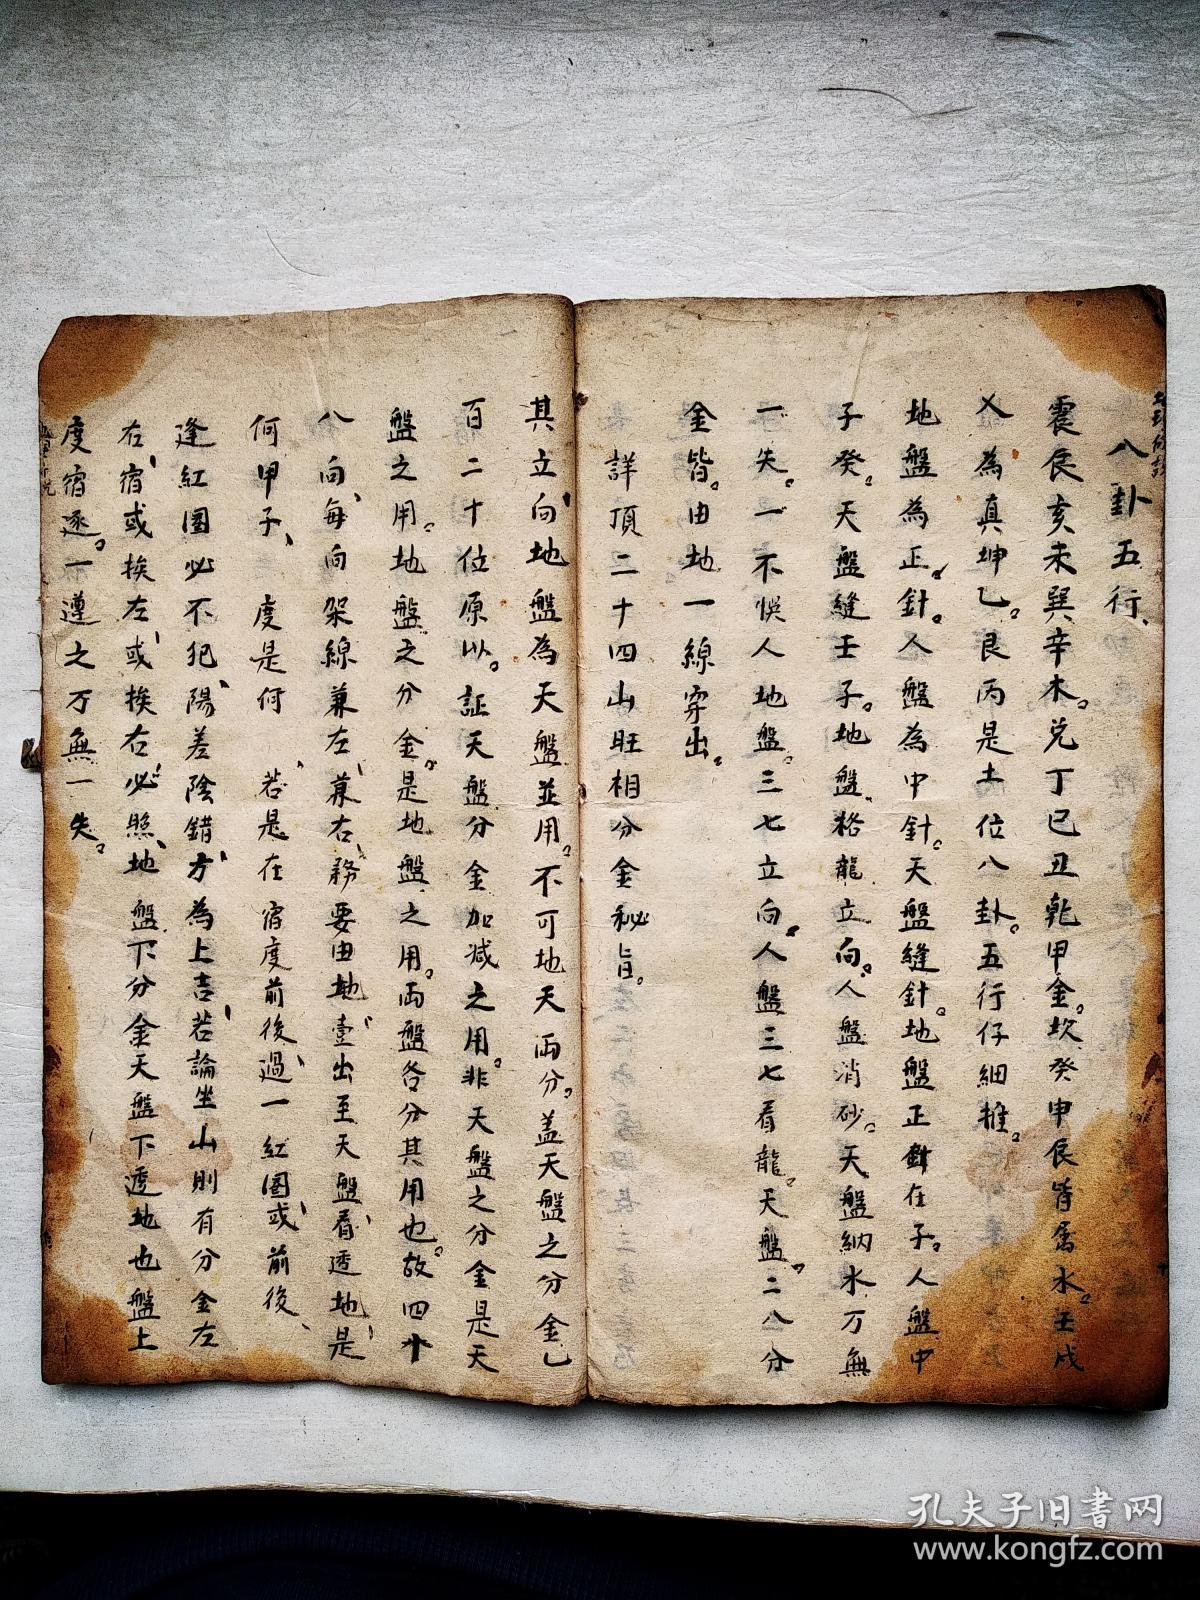 八卦五行、
震艮亥未巽辛木。兑丁巳丑乾甲金。坎癸申辰皆属水。壬戌
乂為真坤乙。艮丙是土位八卦。五行仔細推。
地盤為正針。人盤為中針。天盤縫針。地盤正針在子。人盤中
子癸。天盤縫壬子。地盤格龍立向。人盤消砂。天盤納水万無
一失。一不悞人地盤。三七立向。人盤三七看龍。天盤。二八分
金皆。由地一線穿出。
詳頂二十四山旺相分金秘旨。
其立向、地盤為天盤並用。不可地天両分。盖天盤之分金乚
百二十位原以。証天盤分金加减之用。非天盤之分金是天
盤之用。地盤之分金。是地盤之用。両盤各分其用也。故四十
八向、每向架線兼左、兼右、務要由地、壹出至天盤、看透地、是
何甲子、度是何、若是在宿度前後、過、一紅圈、或前後、
逢紅圈必不犯、陽差陰錯、方為上吉、若論坐山則有分金左
右、宿或挨左、或挨右必照、地盤下分金天盤下透地也盤上
度宿逐。一遵之万無一失。
孔夫子旧书网
www.kongfz.com